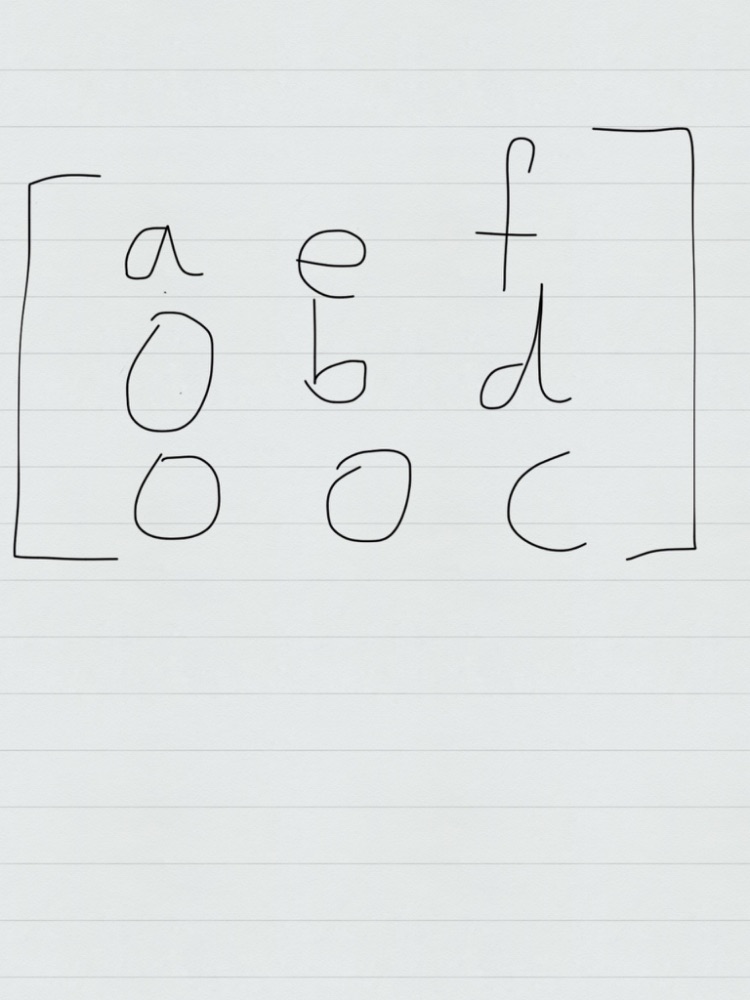 a e f
0 b d
0 0 c